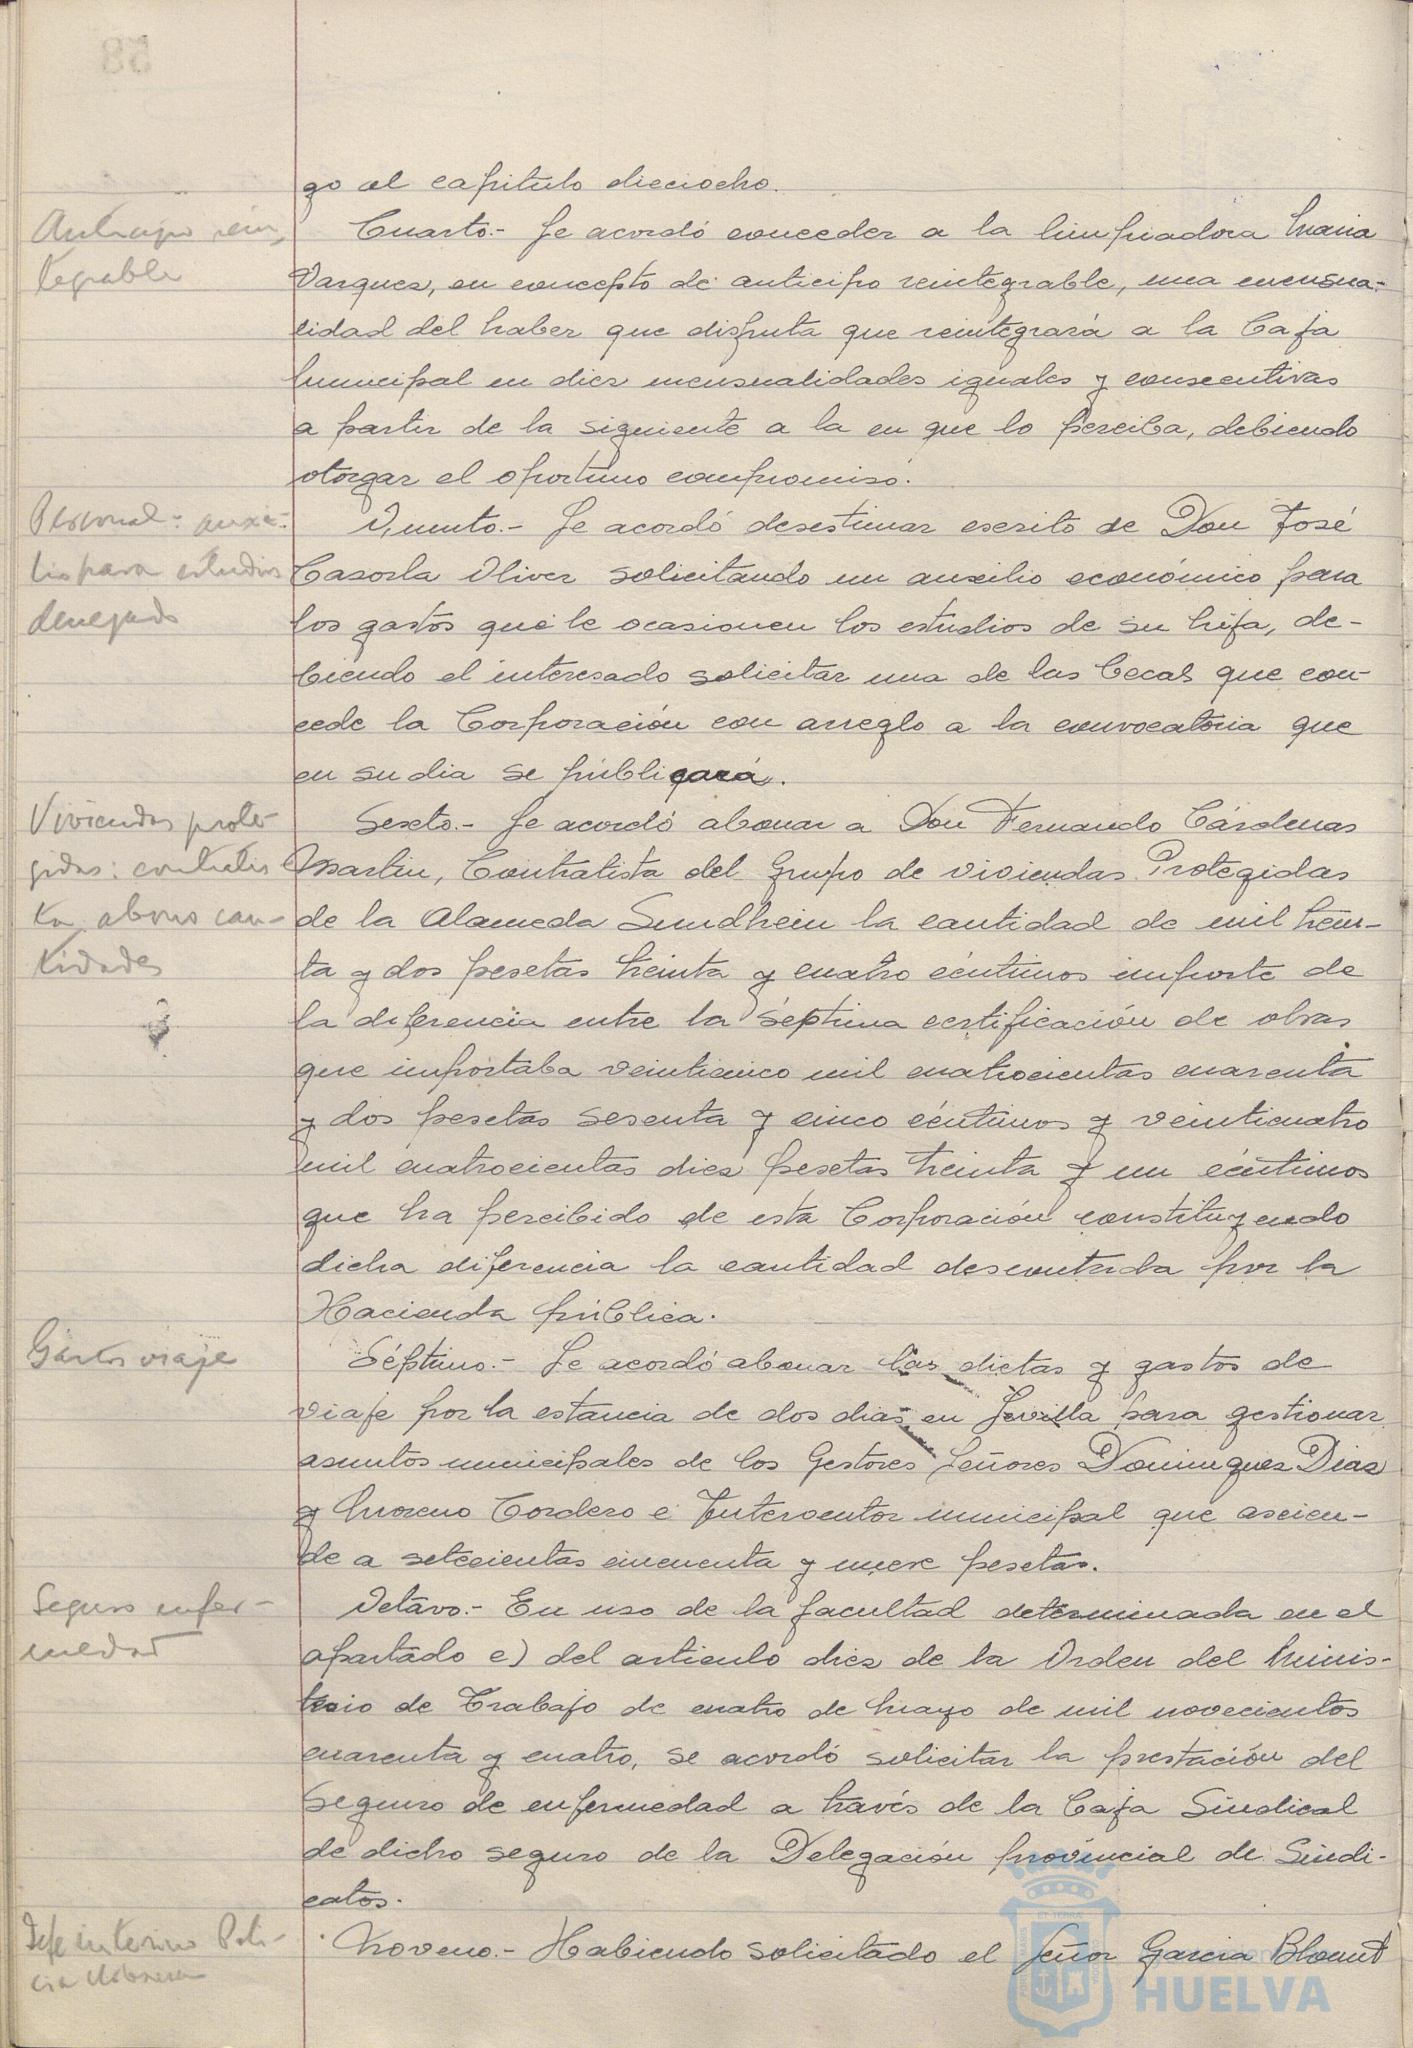 58
go al capitulo dieciocho.
Anticipo rein-
tegrable
Cuarto.- Se acordó conceder a la limpiadora Maria
Vazquez, en concepto de anticipo reintegrable, una mensua-
lidad del haber que disfruta que reintegrará a la Caja
Municipal en diez mensualidades iguales y consecutivas
a partir de la siguiente a la en que lo perciba, debiendo
otorgar el oportuno compromiso.
Personal: auxi-
lio para estudios
denegado
Quinto.- Se acordó desestimar escrito de Don José
Casorla Oliver solicitando un auxilio económico para
los gastos que le ocasionen los estudios de su hija, de-
biendo el interesado solicitar una de las becas que con-
cede la Corporación con arreglo a la convocatoria que
en su dia se publicará.
Viviendas prote-
gidas: contratis-
ta abono can-
tidades
Sexto.- Se acordó abonar a Don Fernando Cárdenas
Martin, Contratista del Grupo de viviendas Protegidas
de la Alameda Sundhein la cantidad de mil trein-
ta y dos pesetas treinta y cuatro céntimos importe de
la diferencia entre la séptima certificación de obras
que importaba veinticinco mil cuatrocientas cuarenta
y dos pesetas sesenta y cinco céntimos y veinticuatro
mil cuatrocientas diez pesetas treinta y un céntimos
que ha percibido de esta Corporación constituyendo
dicha diferencia la cantidad descontada por la
Hacienda pública.
Gastos viaje
Séptimo.- Se acordó abonar las dietas y gastos de
viaje por la estancia de dos dias en Sevilla para gestionar
asuntos municipales de los Gestores Señores Dominguez Diaz
y Moreno Cordero e Interventor municipal que ascien-
de a setecientas cincuenta y nueve pesetas.
Seguro enfer-
medad
Octavo.- En uso de la facultad determinada en el
apartado e) del articulo diez de la Orden del Minis-
terio de Trabajo de cuatro de Mayo de mil novecientos
cuarenta y cuatro, se acordó solicitar la prestación del
Seguro de enfermedad a través de la Caja Sindical
de dicho seguro de la Delegación provincial de Sindi-
catos.
Jefe interino Poli-
cia Urbana
Noveno.- Habiendo solicitado el Señor Garcia Blount
HUELVA